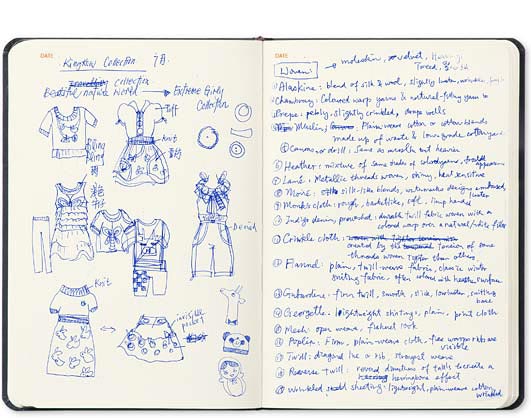 DATE
Kingkow Collection 7月.
collection
Beautiful natural World → Extreme Girly
Collection
knit
Denim
Knit
invisible
pocket
DATE
Woven → moleskin, velvet,
Tweed,
Alaskine: blend of silk & wool, slightly
Chambray: Coloured warp yarns & natural filling yarn
Crepe: pebbly, slightly crinkled, drapes well
Muslin, Plain weave cotton or cotton blends
made up of waste & low grade cotton yarn
Canvas or drill: Same as muslin but heavier
Heather: mixture of
appearance
Lamé: Metallic threads woven, shiny, heat sensitive
Moire: silk-like blends, watermarks designs embossed,
Monk's cloth: rough, basketlike, soft, limp handed
Indigo denim, prewashed: durable twill fabric woven with a
coloured warp over a natural/white filler
Crinkle cloth:
created by the tension of some
threads woven tighter than others.
Flannel: plain, twill-weave fabric, classic winter
suiting fabric, often coloured with heather surface
Gabardine: Firm twill, smooth, slick, low luster, suiting
Georgette: lightweight shirting, plain, print cloth
Mesh: open weave, fishnet look
Poplin: Firm, plain-weave cloth, fine warp ribs are
visible
Twill: diagonal line or rib, strongest weave
Reverse twill: reversed directions of twills to create a
herringbone effect
Wrinkled sheeting: lightweight, plain-weave cotton,
wrinkled